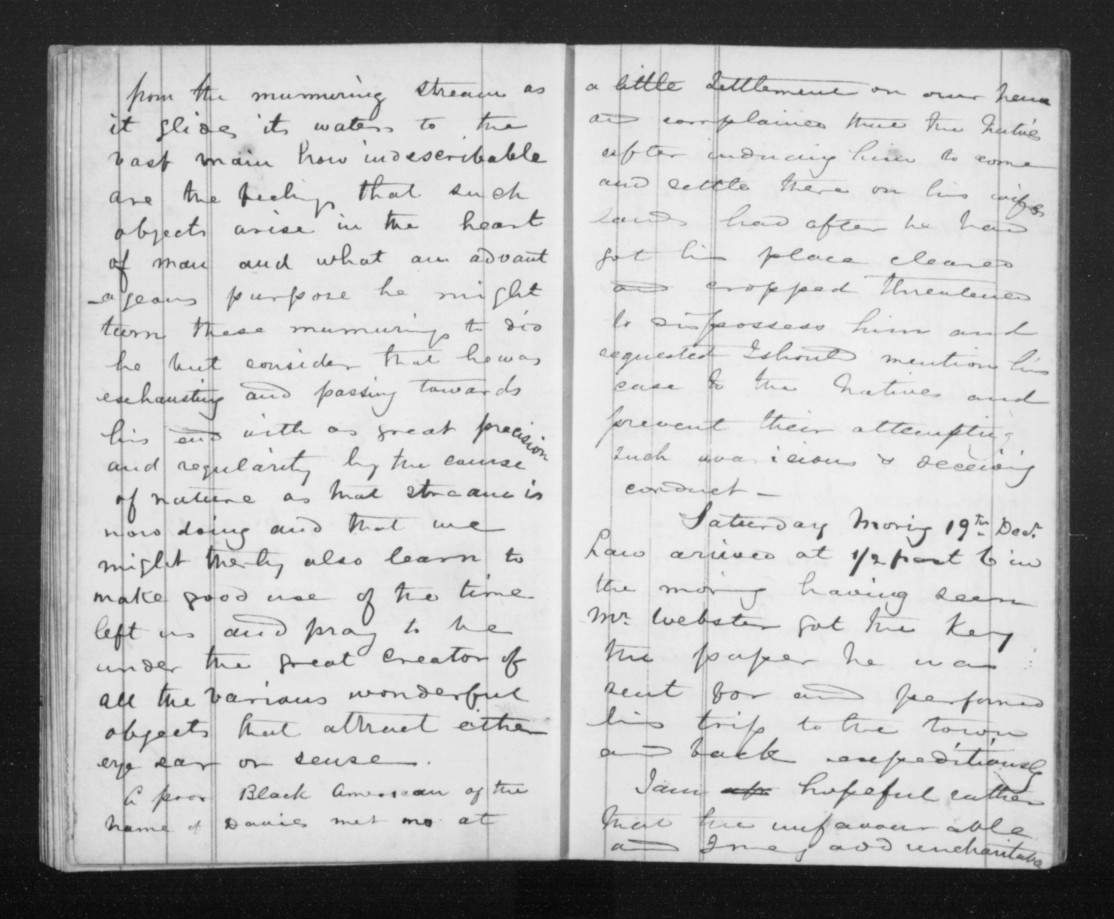 from the murmuring stream as
it glides its waters to the
vast main how indescribable
are the feelings that such
objects arise in the heart
of man and what an advant
-ageous purpose he might
turn these murmurings to did
he but consider that he was
exhausting and passing towards
his end with as great precision
and regularity by the course
of nature as that stream is
now doing and that we
might therby also learn to
make good use of the time
left us and pray to be
under the great creator of
all the various wonderful
objects that attract either
eye ear or sense.
A poor Black American of the
name of Davies met me at
a little Settlement on our
and complained that the Natives
after inducing him to come
and settle there on his wifes
lands had after he had
got his place cleared
and cropped threatened
to dispossess him and
requested I should mention his
case to the Natives and
prevent their attempting
such avaricious & deceiving
conduct —
Saturday Moring 19th Decr
Law arrived at 1/2 past 6 in
the moring having seen
Mr Webster got the Key
the paper he was
sent for and performed
his trip to the town
and back expeditiously
I am hopeful rather
that the unfavourable
and I may add uncharitable